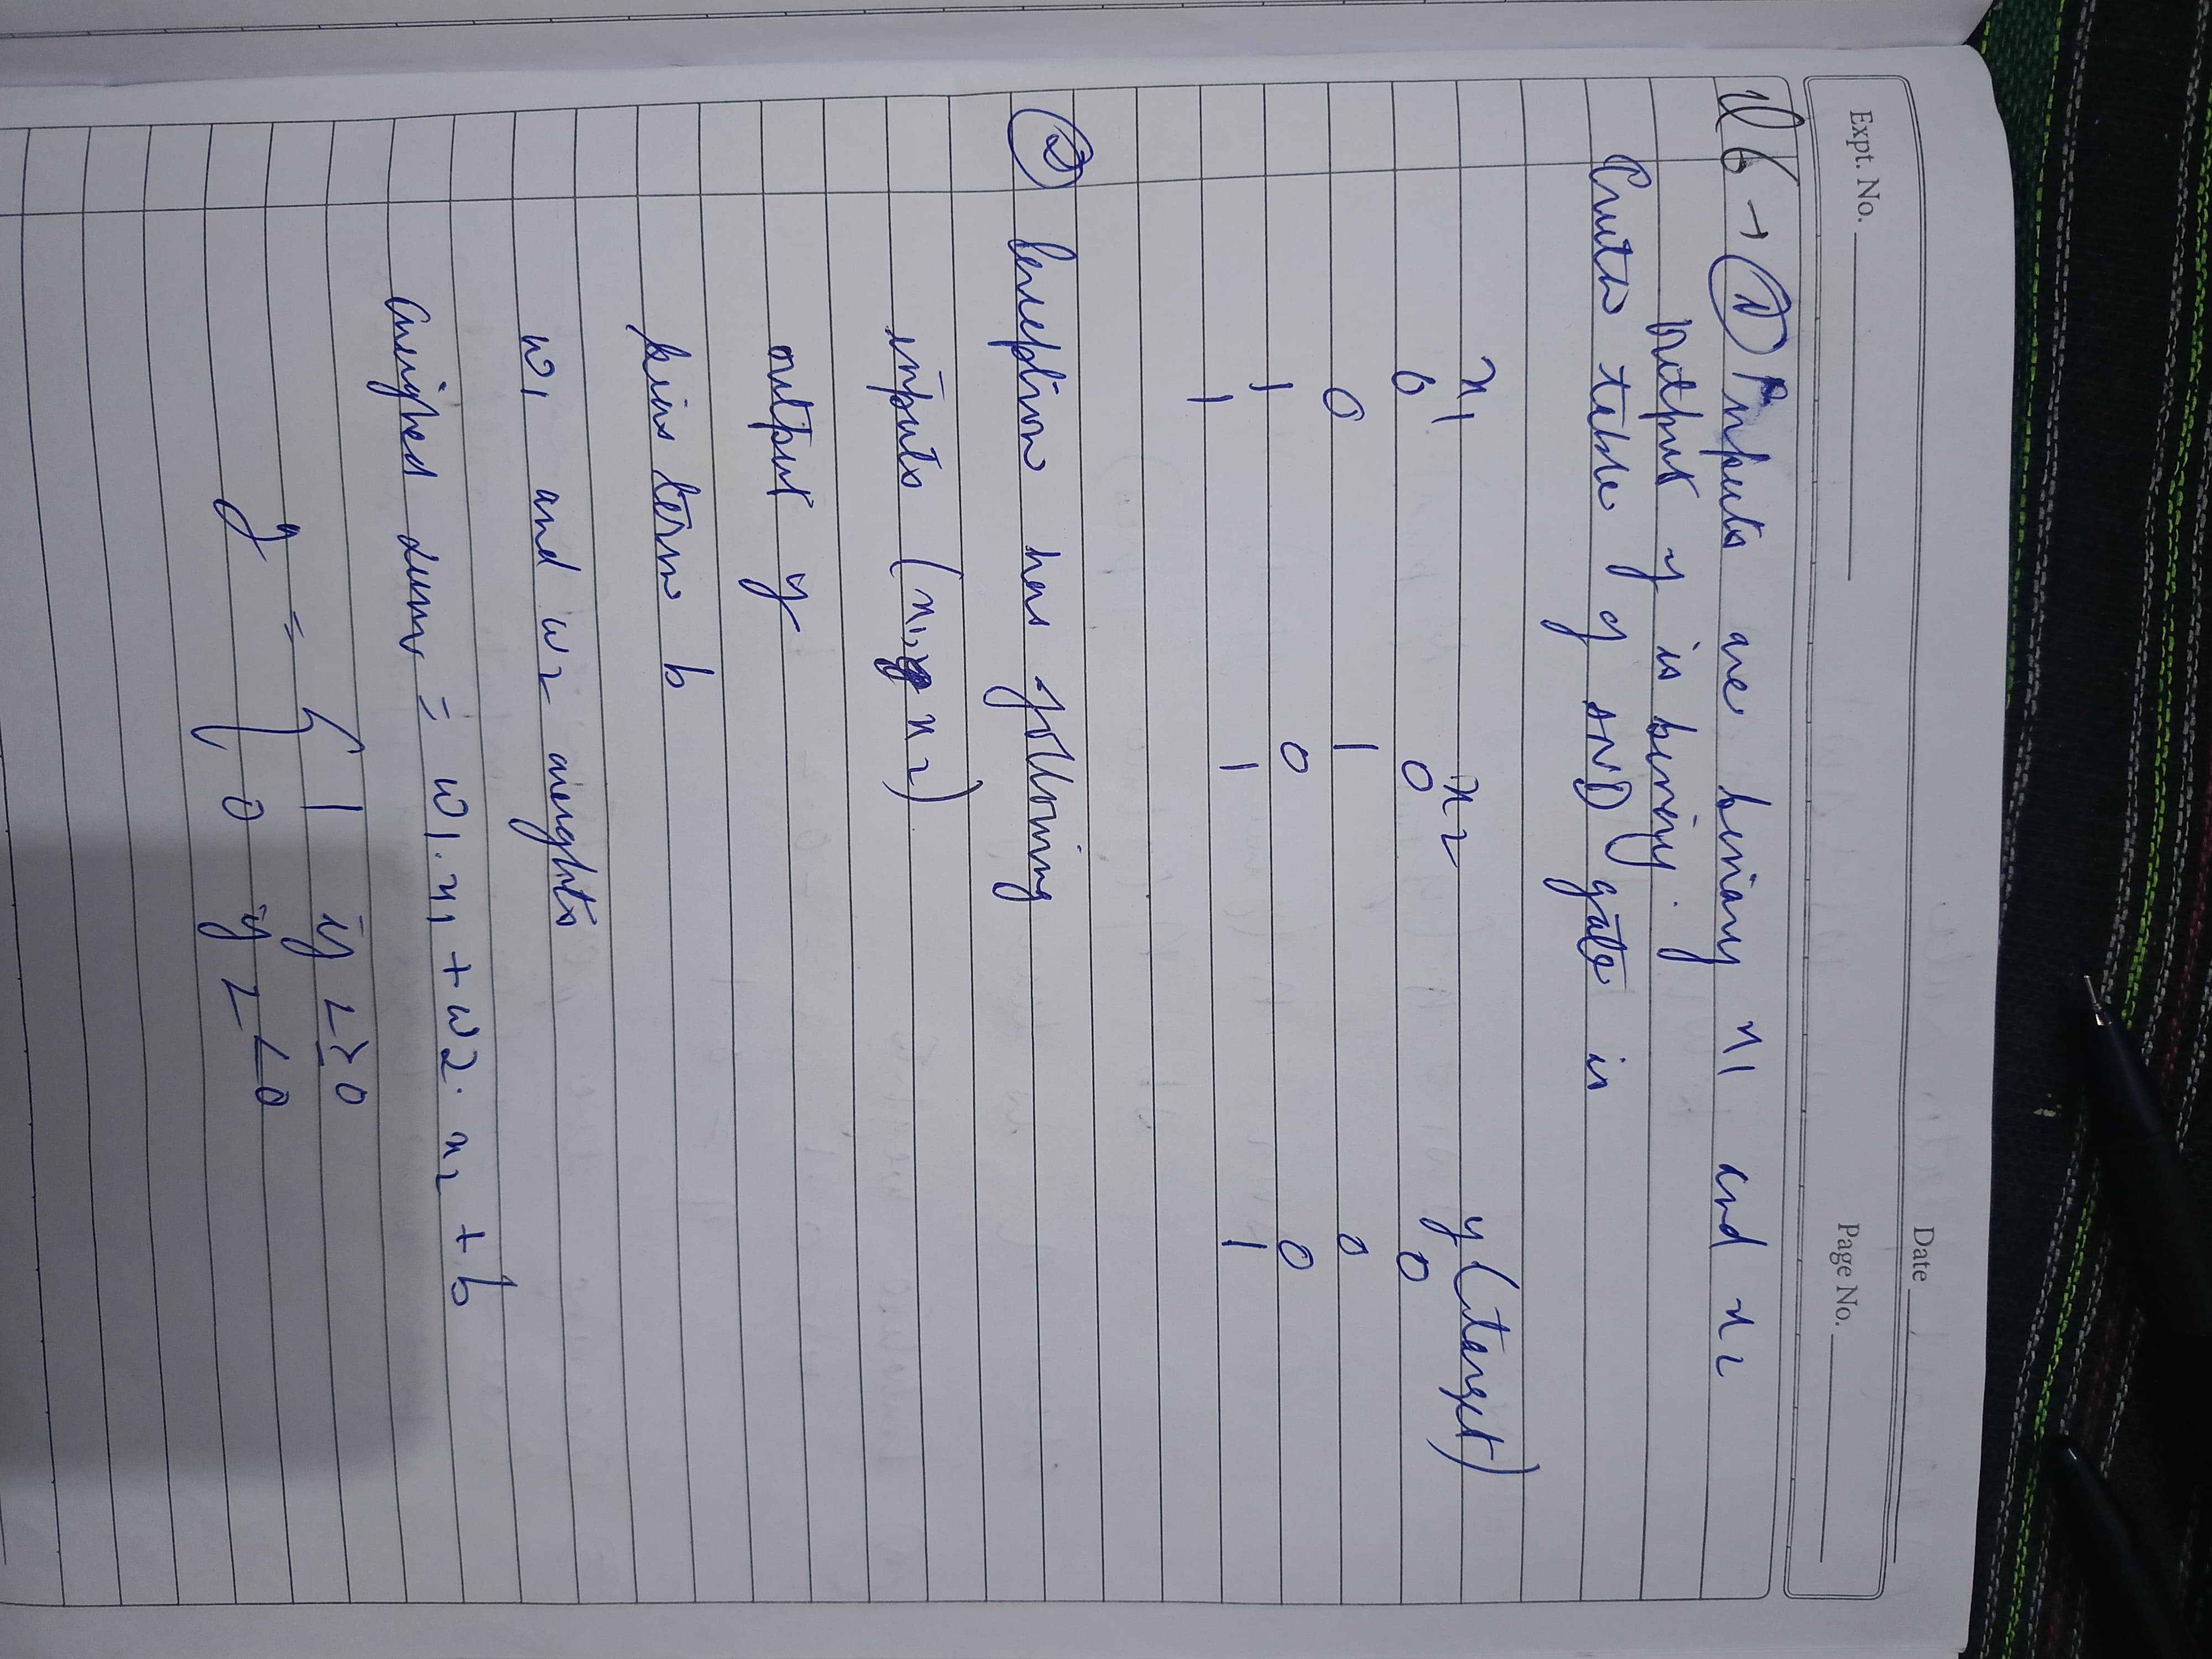 Date
Expt. No.
Page No.
Q6 → ① Inputs are binary x1 and x2
output y is binary.
Truth table of AND gate is
x1 x2 y (target)
0 0 0
0 1 0
1 0 0
1 1 1
② Perceptron has following
inputs (x1, x2)
output y
bias term b
w1 and w2 weights
weighed sum = w1.x1 + w2. x2 + b
y = { 1 if z ≥ 0
0 if z < 0